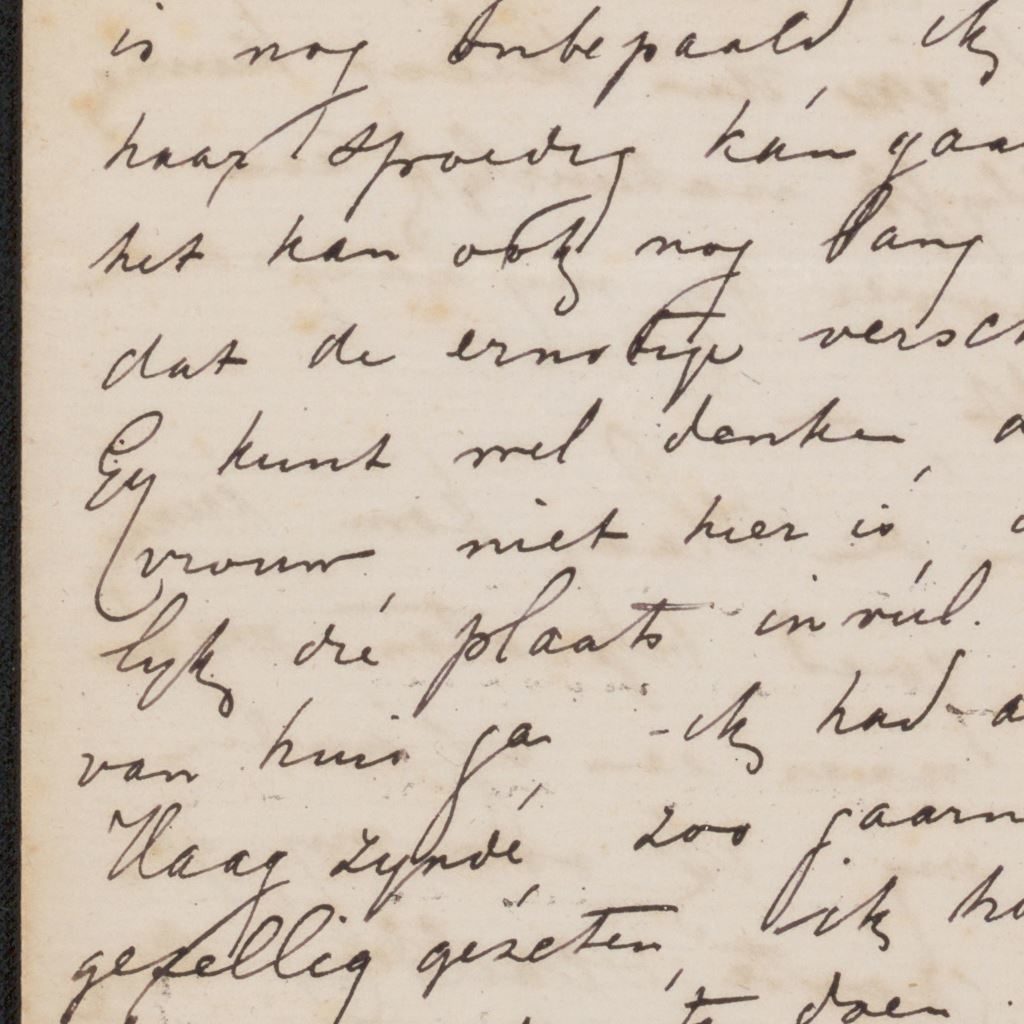 is nog onbepaald ik
haar spoedig kan gaa
het kan ook nog lang
dat de ernstige versch
Gy kunt wel denken,
vrouw niet hier is,
lyk die plaats invul.
van huis ga - ik had a
Haag zynde zoo gaarn
gezellig gezeten, ik ha
doen